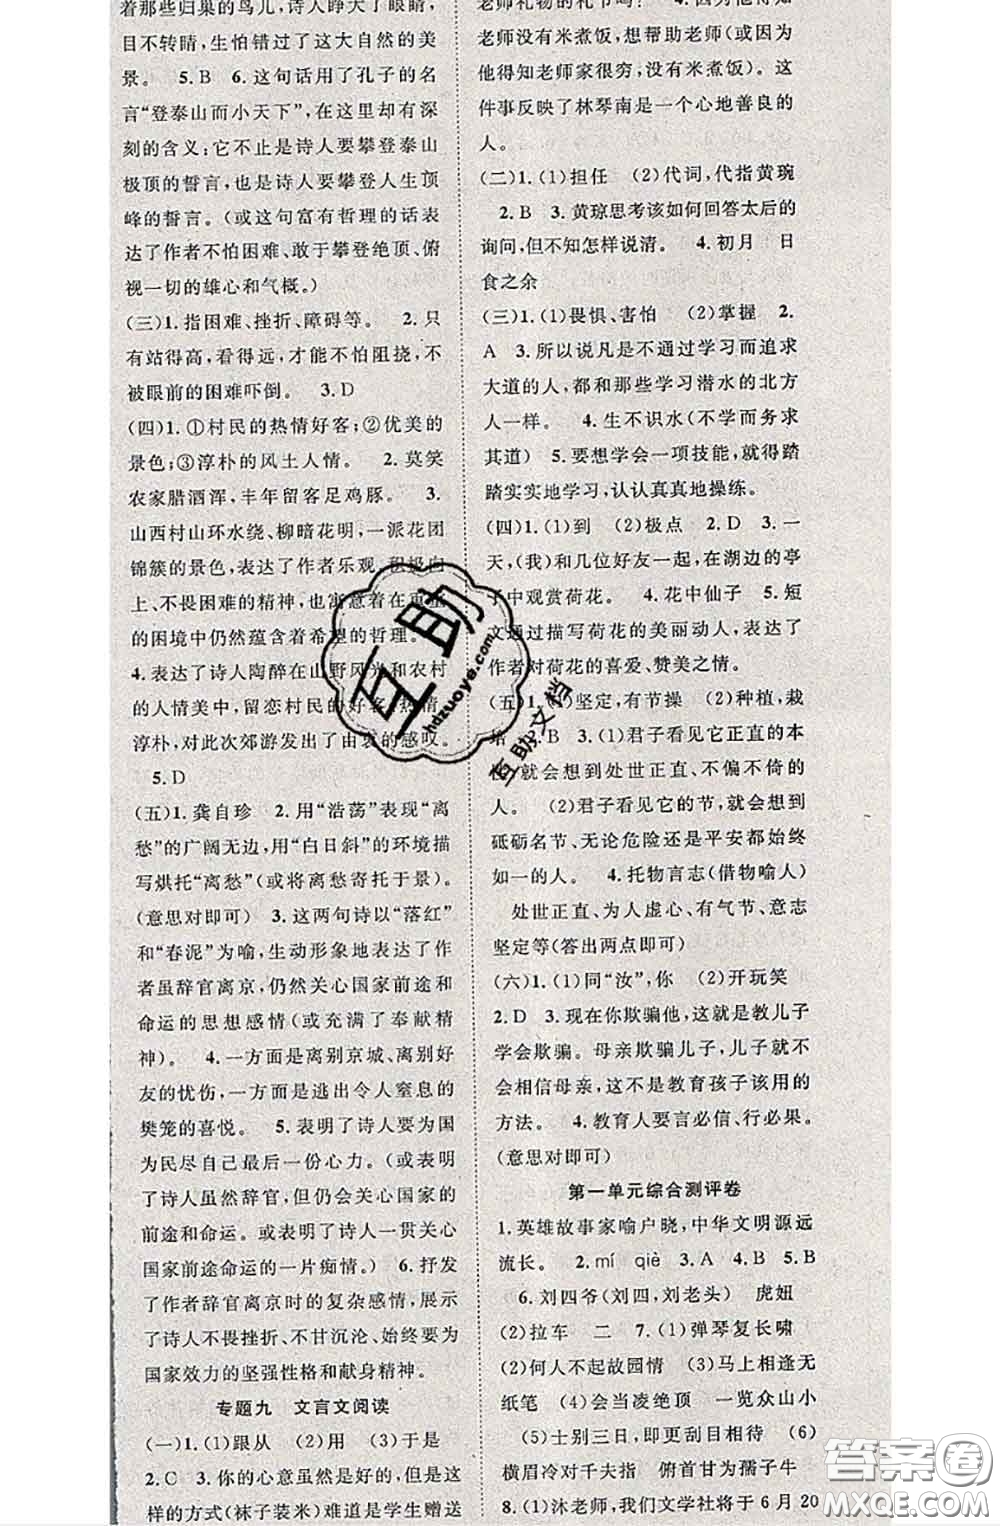 着那些归巢的鸟儿,诗人睁大了眼睛,
目不转睛,生怕错过了这大自然的美
景。 5.B 6.这句话用了孔子的名
言“登泰山而小天下”,在这里却有深
刻的含义:它不止是诗人要攀登泰山
极顶的誓言,也是诗人要攀登人生顶
峰的誓言。(或这句富有哲理的话表
达了作者不怕困难、敢于攀登绝顶、俯
视一切的雄心和气概。)
(三)1.指困难、挫折、障碍等。 2.只
有站得高,看得远,才能不怕阻挠,不
被眼前的困难吓倒。 3.D
(四)1.①村民的热情好客;②优美的
景色;③淳朴的风土人情。 2.莫笑
农家腊酒浑,丰年留客足鸡豚。 3.
山西村山环水绕、柳暗花明,一派花团
锦簇的景色,表达了作者乐观、积极向
上、不畏困难的精神,也寓意着在重重
的困境中仍然蕴含着希望的哲理。
4.表达了诗人陶醉在山野风光和农村
的人情美中,留恋村民的好客、热情、
淳朴,对此次郊游发出了由衷的感叹。
5.D
(五)1.龚自珍 2.用“浩荡”表现“离
愁”的广阔无边,用“白日斜”的环境描
写烘托“离愁”(或将离愁寄托于景)。
(意思对即可) 3.这两句诗以“落红”
和“春泥”为喻,生动形象地表达了作
者虽辞官离京,仍然关心国家前途和
命运的思想感情(或充满了奉献精
神)。 4.一方面是离别京城、离别好
友的忧伤,一方面是逃出令人窒息的
樊笼的喜悦。 5.表明了诗人要为国
为民尽自己最后一份心力。(或表明
了诗人虽然辞官,但仍会关心国家的
前途和命运。或表明了诗人一贯关心
国家前途命运的一片痴情。) 6.抒发
了作者辞官离京时的复杂感情,展示
了诗人不畏挫折、不甘沉沦、始终要为
国家效力的坚强性格和献身精神。
专题九 文言文阅读
(一)1.(1)跟从 (2)用 (3)于是
2.C 3.你的心意虽然是好的,但是这
样的方式(袜子装米)难道是学生赠送
老师礼物的礼节吗? 4.因为他得知
老师没有米煮饭,想帮助老师(或因为
他得知老师家很穷,没有米煮饭)。这
件事反映了林琴南是一个心地善良的
人。
(二)1.(1)担任 (2)代词,代指黄琬
2.B 3.黄琼思考该如何回答太后的
询问,但不知怎样说清。 4.初月 日
食之余
(三)1.(1)畏惧、害怕 (2)掌握 2.
A 3.所以说凡是不通过学习而追求
大道的人,都和那些学习潜水的北方
人一样。 4.生不识水(不学而务求
其道) 5.要想学会一项技能,就得踏
踏实实地学习,认认真真地操练。
(四)1.(1)到 (2)极点 2.D 3.一
天,(我)和几位好友一起,在湖边的亭
子中观赏荷花。 4.花中仙子 5.短
文通过描写荷花的美丽动人,表达了
作者对荷花的喜爱、赞美之情。
(五)1.(1)坚定,有节操 (2)种植,栽
培 2.B 3.(1)君子看见它正直的本
性,就会想到处世正直、不偏不倚的
人。 (2)君子看见它的节,就会想到
砥砺名节、无论危险还是平安都始终
如一的人。 4.托物言志(借物喻人)
处世正直、为人虚心、有气节、意志
坚定等(答出两点即可)
(六)1.(1)同“汝”,你 (2)开玩笑
2.D 3.现在你欺骗他,这就是教儿子
学会欺骗。母亲欺骗儿子,儿子就不
会相信母亲,这不是教育孩子该用的
方法。 4.教育人要言必信、行必果。
(意思对即可)
第一单元综合测评卷
1.英雄故事家喻户晓,中华文明源远
流长。 2.mí qiè 3.A 4.B 5.B
6.刘四爷(刘四,刘老头) 虎妞
(2)拉车 二 7.(1)弹琴复长啸
(2)何人不起故园情 (3)马上相逢无
纸笔 (4)会当凌绝顶 一览众山小
(5)士别三日,即更刮目相待 (6)
横眉冷对千夫指 俯首甘为孺子牛
8.(1)沐老师,我们文学社将于6月20
互助
hdzuoye.com
互助文档
答案圈
MXQE.COM